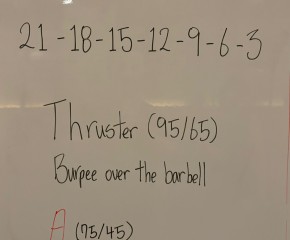 21-18-15-12-9-6-3
Thruster (95/65)
Burpee over the barbell
A (75/45)